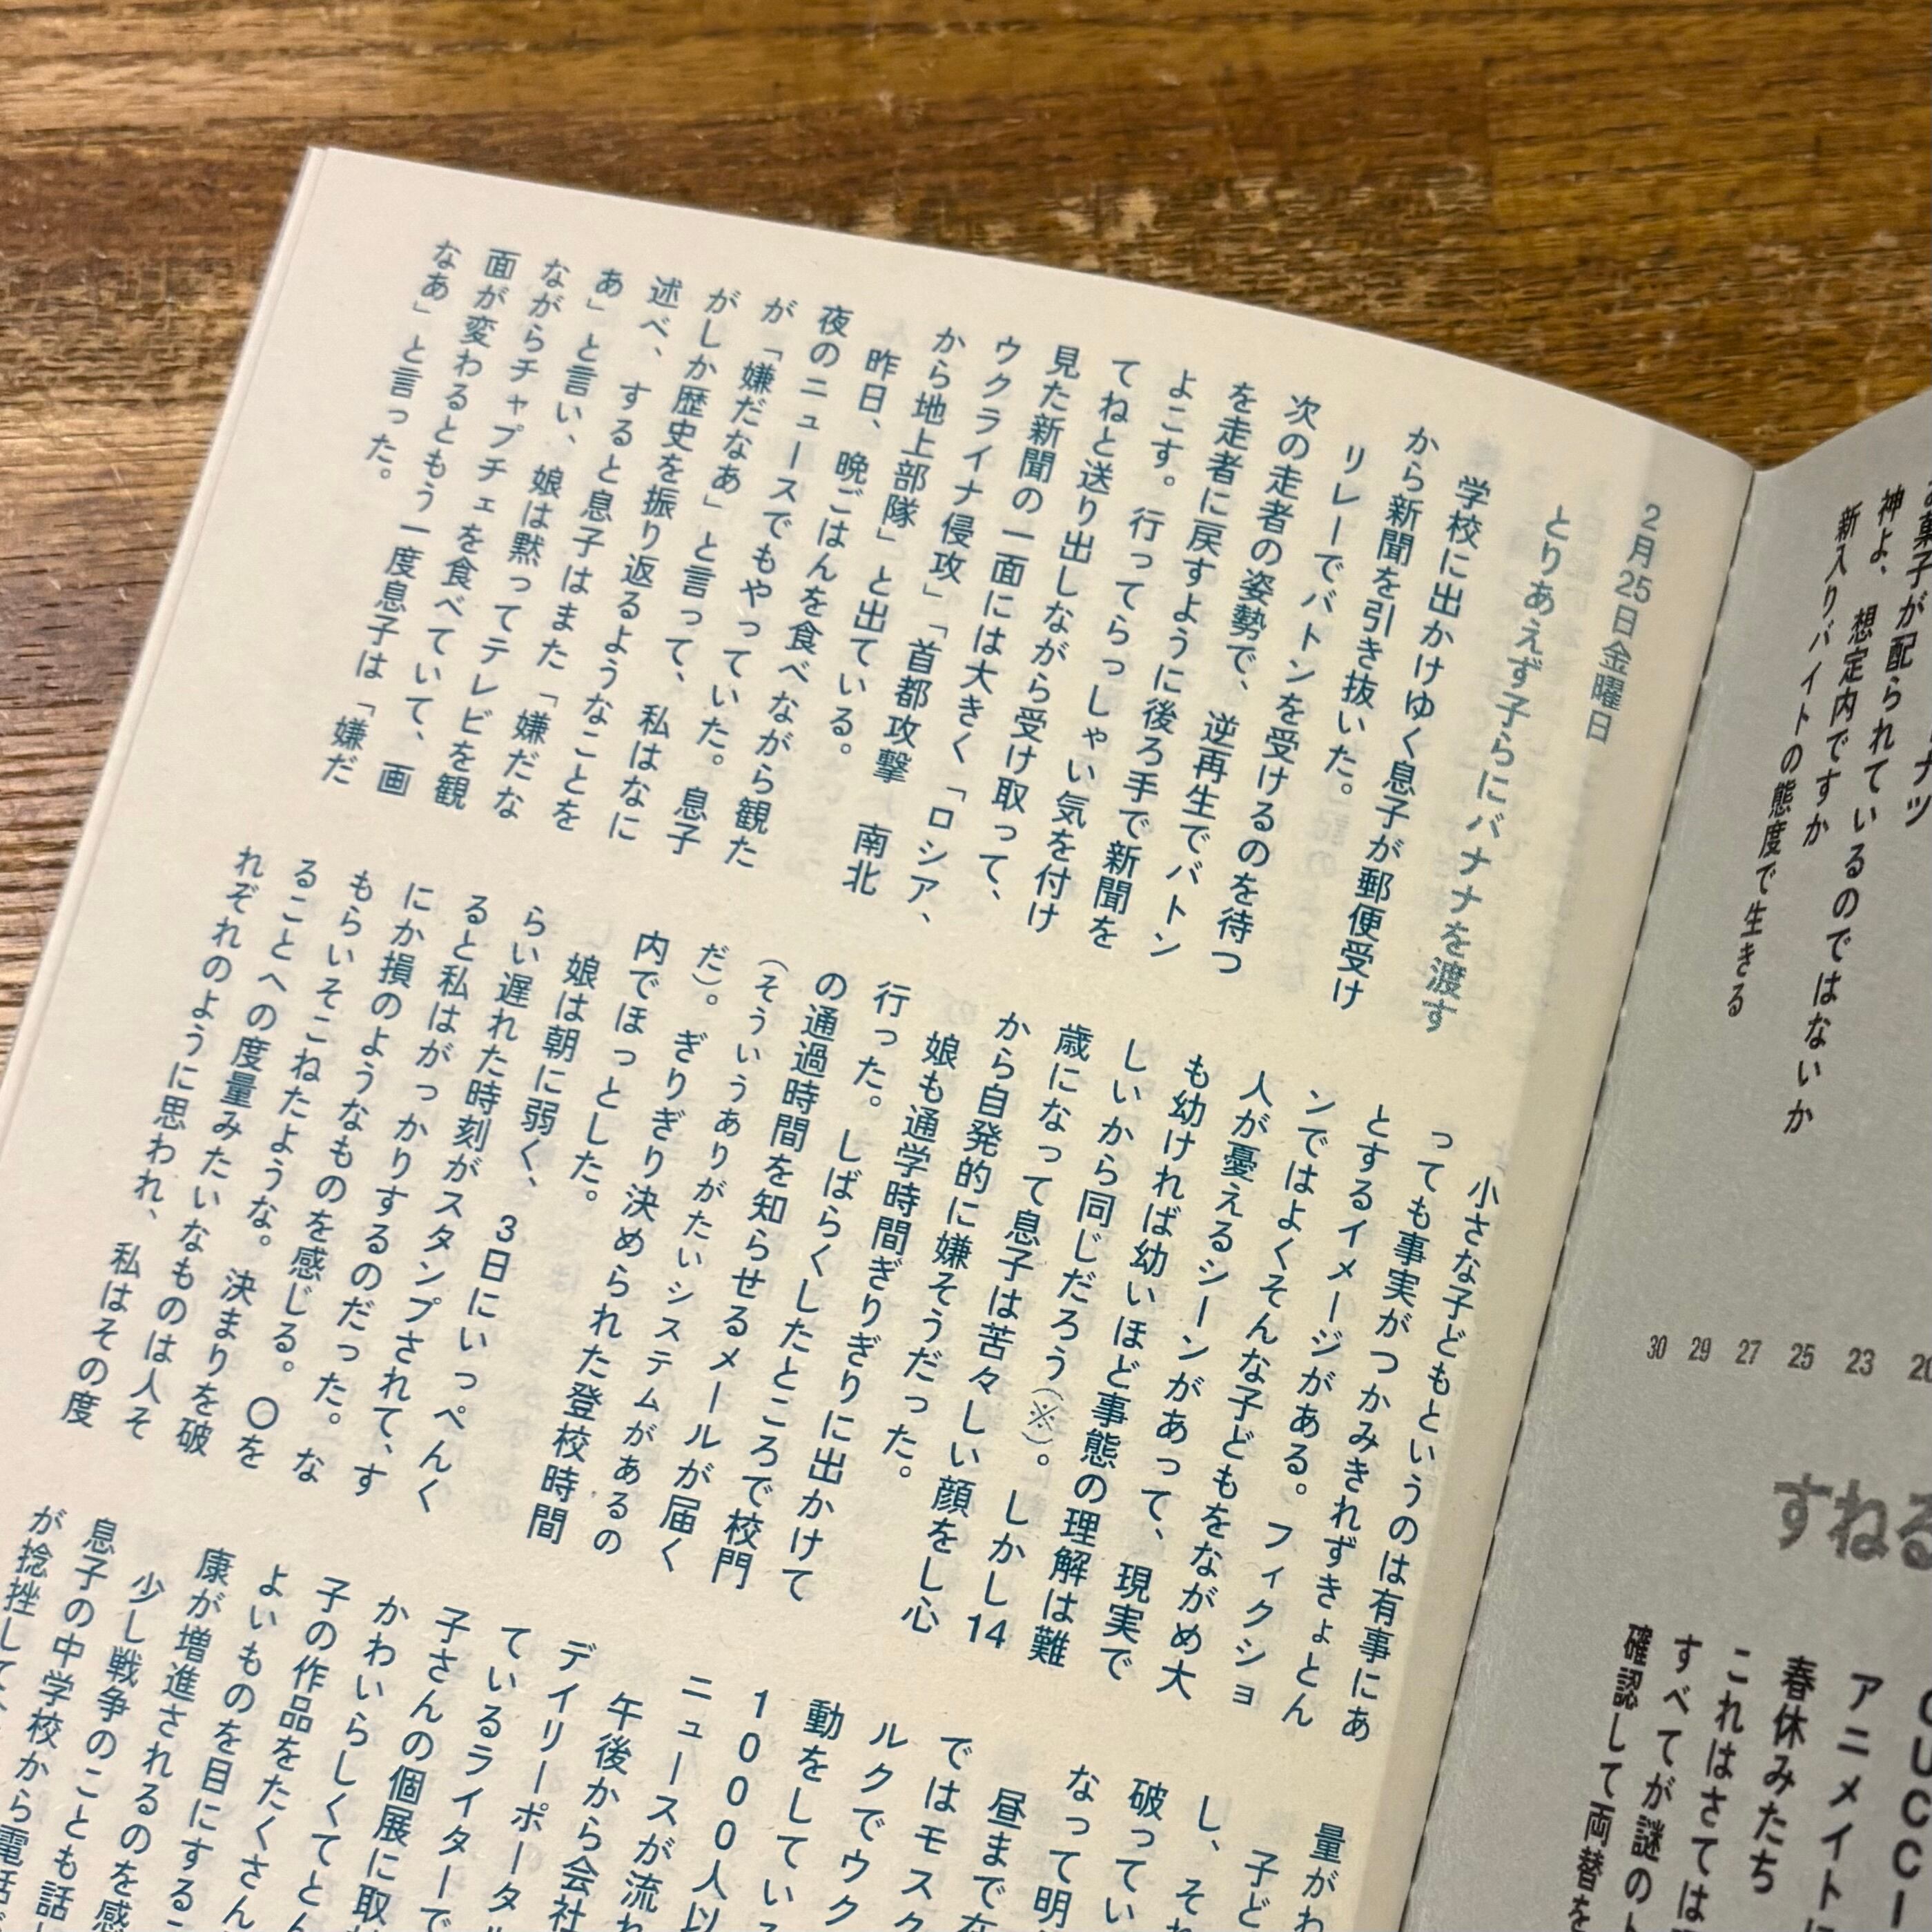 2月25日金曜日
とりあえず子らにバナナを渡す
学校に出かけゆく息子が郵便受け
から新聞を引き抜いた。
リレーでバトンを受けるのを待つ
次の走者の姿勢で、逆再生でバトン
を走者に戻すように後ろ手で新聞を
よこす。行ってらっしゃい気を付け
てねと送り出しながら受け取って、
見た新聞の一面には大きく「ロシア、
ウクライナ侵攻」「首都攻撃 南北
から地上部隊」と出ている。
昨日、晩ごはんを食べながら観た
夜のニュースでもやっていた。息子
が「嫌だなあ」と言って、私はなに
がしか歴史を振り返るようなことを
述べ、すると息子はまた「嫌だな
あ」と言い、娘は黙ってテレビを観
ながらチャプチェを食べていて、画
面が変わるともう一度息子は「嫌だ
なあ」と言った。
小さな子どもというのは有事にあ
っても事実がつかみきれずきょとん
とするイメージがある。フィクショ
ンではよくそんな子どもをながめ大
人が憂えるシーンがあって、現実で
も幼ければ幼いほど事態の理解は難
しいから同じだろう(※)。しかし14
歳になって息子は苦々しい顔をし心
から自発的に嫌そうだった。
娘も通学時間ぎりぎりに出かけて
行った。しばらくしたところで校門
の通過時間を知らせるメールが届く
(そういうありがたいシステムがあるの
だ)。ぎりぎり決められた登校時間
内でほっとした。
娘は朝に弱く、3日にいっぺんく
らい遅れた時刻がスタンプされて、す
ると私はがっかりするのだった。な
にか損のようなものを感じる。〇を
もらいそこねたような。決まりを破
ることへの度量みたいなものは人そ
れぞれのように思われ、私はその度
量がわ
子ど
し、それ
破ってい
なって明
昼まで在
ではモスク
ルクでウク
動をしている
1000人以
ニュースが流れ
午後から会社
デイリーポータル
ているライターで
子さんの個展に
かわいらしくてとん
子の作品をたくさん
よいものを目にするこ
康が増進されるのを感
少し戦争のことも話し
息子の中学校から電話
が捻挫して
お菓子が配られているのではないか
神よ、想定内ですか
新入りバイトの態度で生きる
20
23
25
27
29
30
すねる
GUCCI
アニメイトに
春休みたち
これはさては
すべてが謎の
確認して両替を